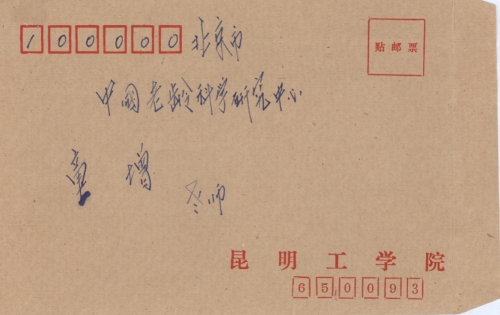 100000 北京市
贴邮票
中国老龄科学研究中心
童增 老师
昆明工学院
650093